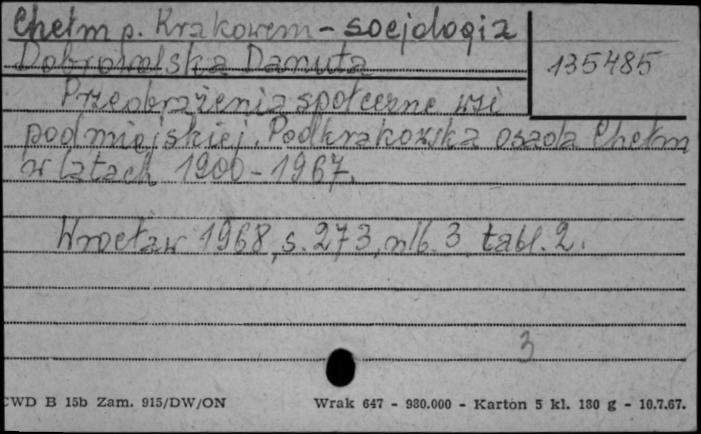 Chełm p. Krakowem - socjologia
Dobrowolska Danuta
135485
Przeobrażenia społeczne wsi
podmiejskiej. Podkrakowska osada Chełm
w latach 1900-1967.
Wrocław 1968, s. 273, nlb. 3, tabl. 2.
3
CWD B 15b Zam. 915/DW/ON
Wrak 647 - 980.000 - Karton 5 kl. 180 g - 10.7.67.